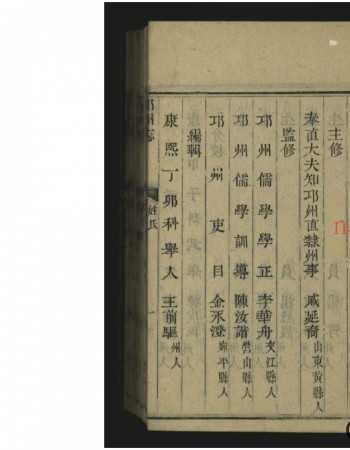 主修
奉直大夫知邛州直隸州事 戚延裔山東黃縣人
監修
邛州儒學學正 李華舟夾江縣人
邛州儒學訓導 陳汝諧營山縣人
邛州吏目 金永澄宛平縣人
編輯
康熙丁卯科舉人 王前驅州人
邛州志 姓氏